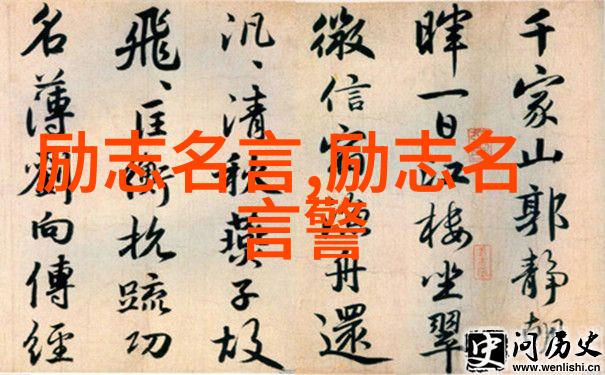 千家山郭靜朝
暉一日江樓坐翠
微信宿漁舟還
汎、清秋燕子故
飛、匡衡抗疏功
名薄劉向傳經
励志名言,励志名
言警
史 问历史
www.wenlishi.cn